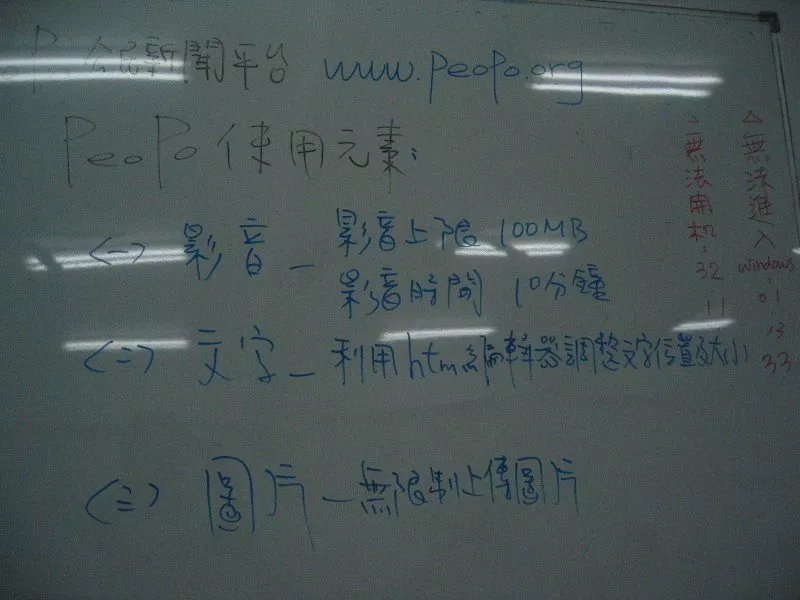 公民新聞平台 www.peopo.org
PeoPo 使用元素:
<一> 影音 - 影音上限 100MB
影音時間 10分鐘
<二> 文字 - 利用html編輯器調整文字位置及大小
<三> 圖片 - 無限制上傳圖片
△無法進入windows: 01
13
33
△無法開机: 32
11